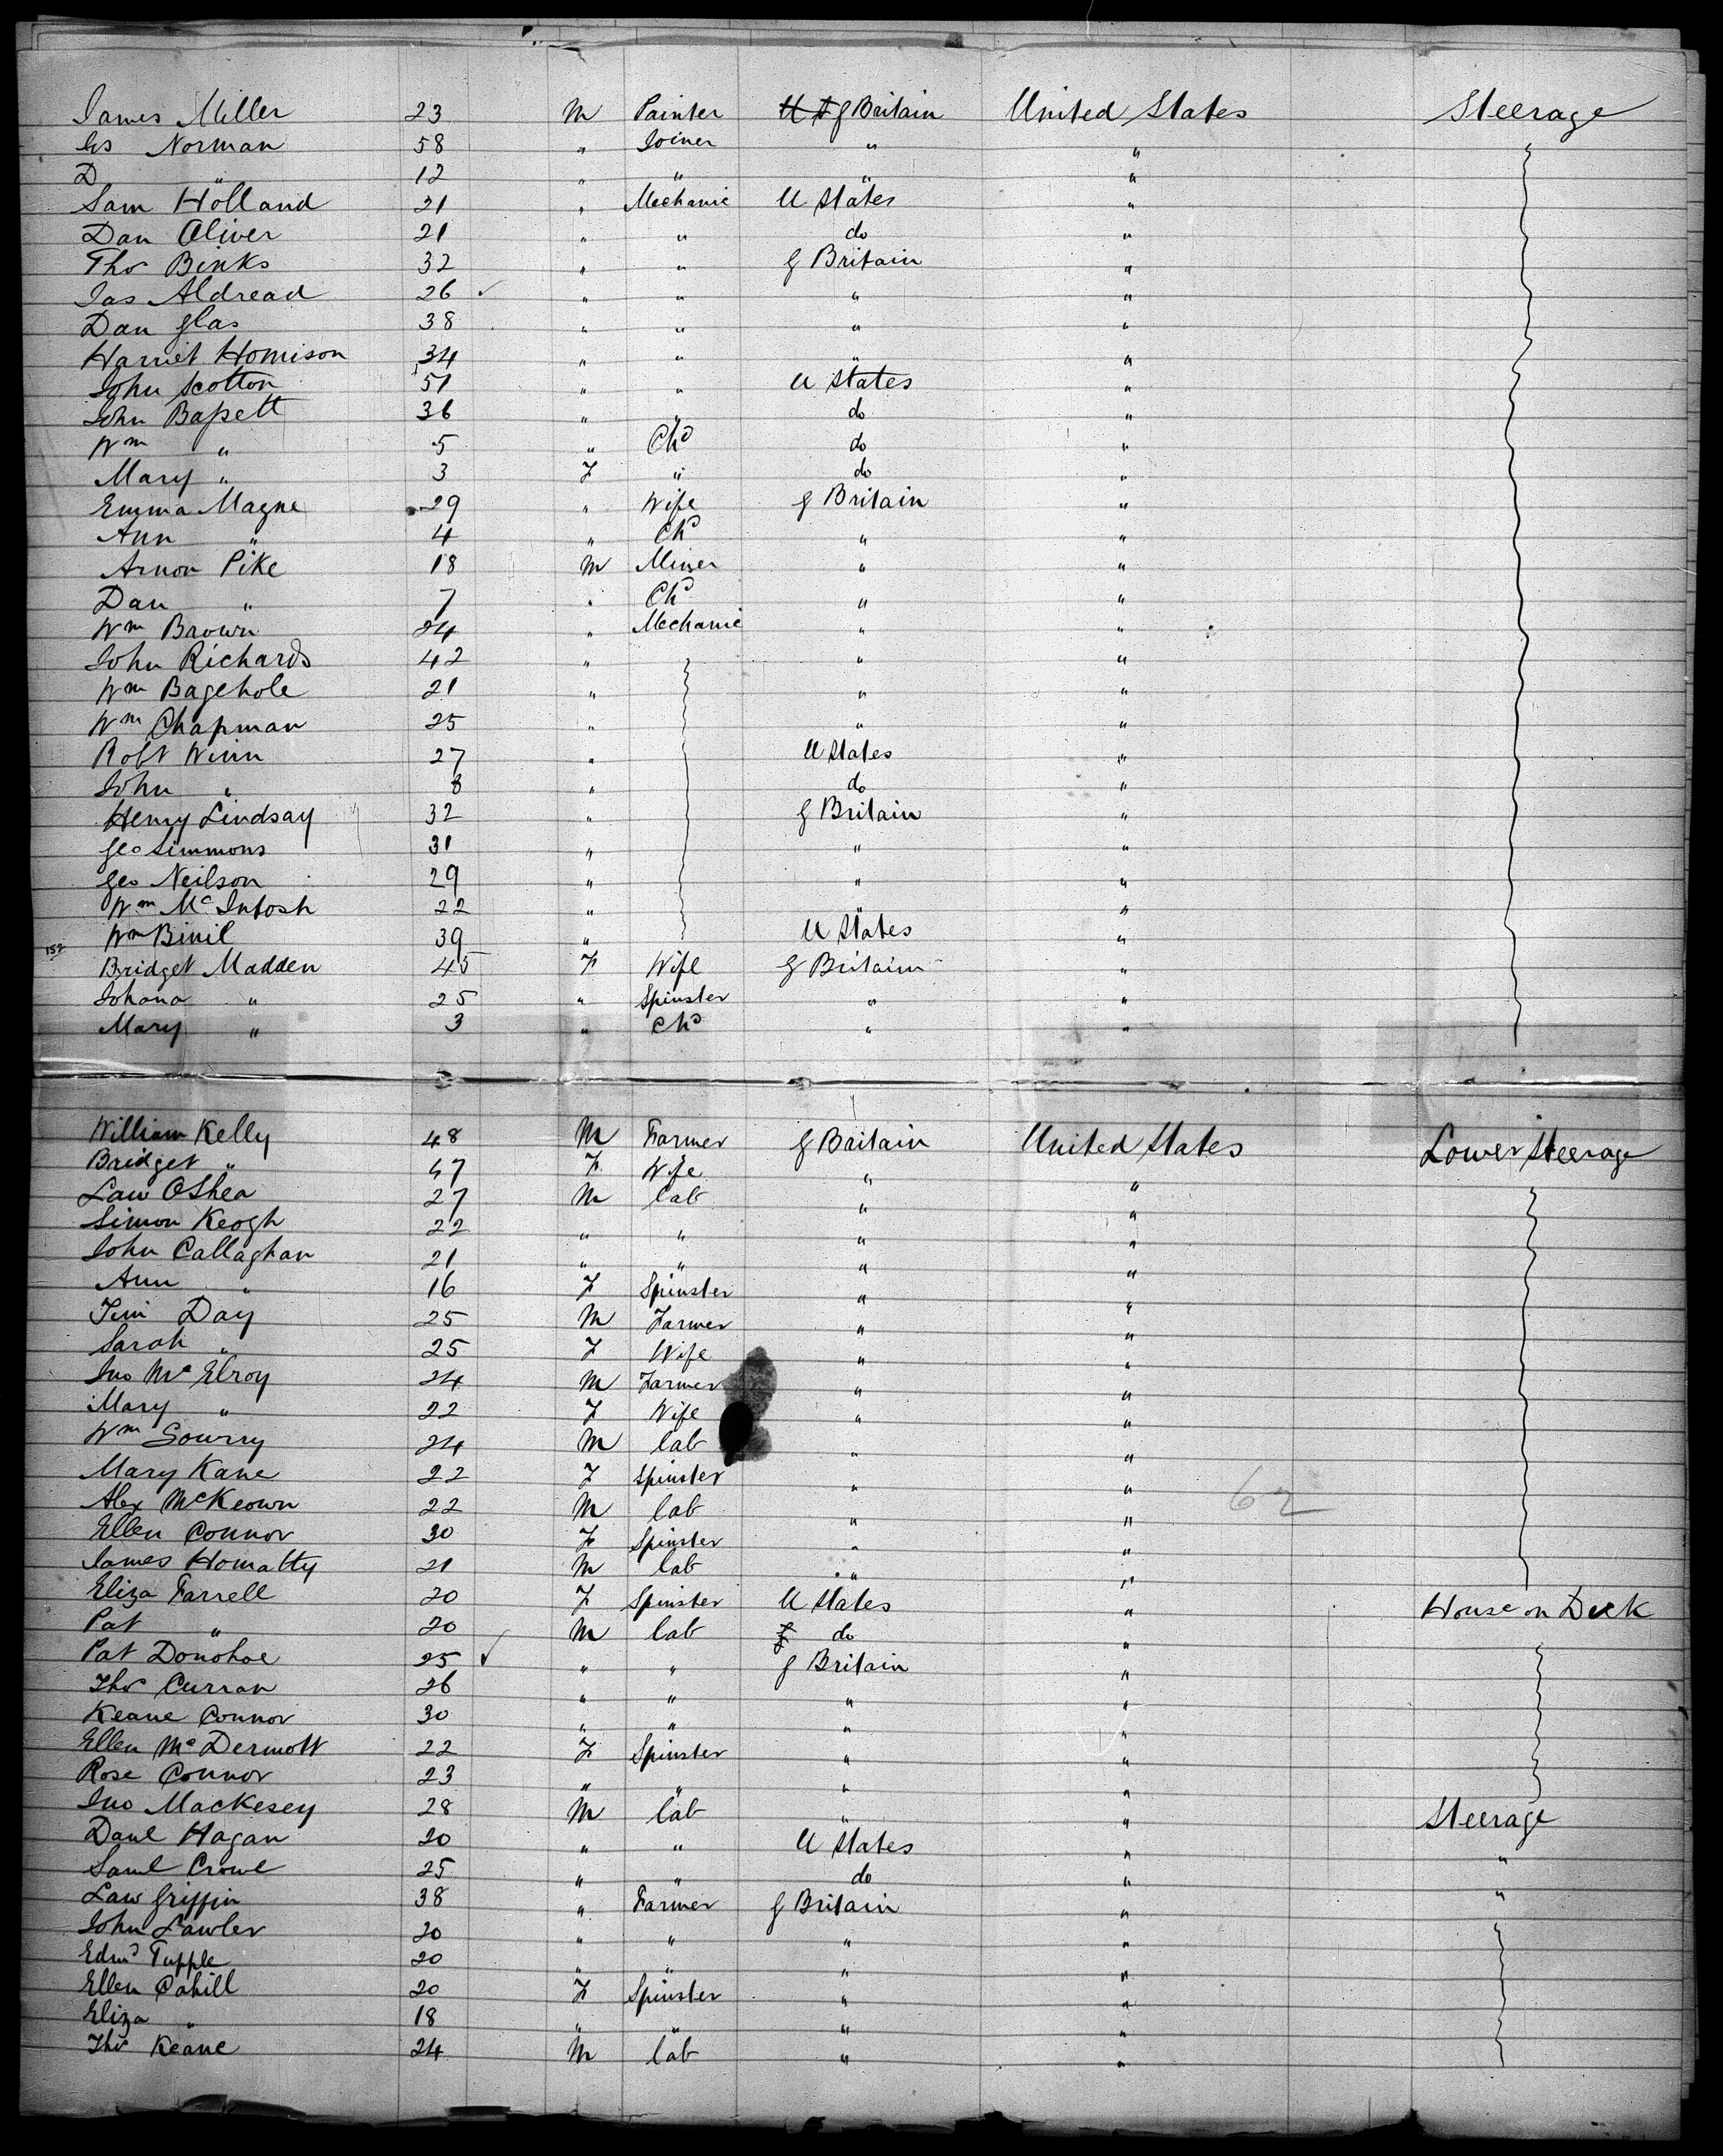 James Miller 23 M Painter G Britain United States Steerage
Gs Norman 58 " Joiner " "
D " 12 " " " "
Sam Holland 21 " Mechanic U States "
Dan Oliver 21 " " do "
Thos Binks 32 " " G Britain "
Jas Aldread 26 " " " "
Dan Glas 38 " " " "
Harriet Homison 34 " " " "
John Scotton 51 " " U States "
John Bassett 36 " " do "
Wm " 5 " Chd do "
Mary " 3 F " do "
Emma Magne 29 " Wife G Britain "
Ann " 4 " Chd " "
Arnon Pike 18 M Miner " "
Dan " 7 " Chd " "
Wm Brown 24 " Mechanic " "
John Richards 42 " " "
Wm Bagehole 21 " " "
Wm Chapman 25 " " "
Robt Winn 27 " U States "
John " 8 " do "
Henry Lindsay 32 " G Britain "
Geo Simmons 31 " " "
Geo Neilson 29 " " "
Wm McIntosh 22 " " "
152 Wm Binil 39 " U States "
Bridget Madden 45 F Wife G Britain "
Johana " 25 " Spinster " "
Mary " 3 " Chd " "
William Kelly 48 M Farmer G Britain United States Lower Steerage
Bridget " 47 F Wife " "
Law OShea 27 M lab " "
Simon Keogh 22 " " " "
John Callaghan 21 " " " "
Ann " 16 F Spinster " "
Tim Day 25 M Farmer " "
Sarah " 25 F Wife " "
Jno McElroy 24 M Farmer " "
Mary " 22 F Wife " "
Wm Sourry 24 M lab " "
Mary Kane 22 F Spinster " "
62
Alex McKeown 22 M lab " "
Ellen Connor 30 F Spinster " "
James Homatty 21 M lab " "
Eliza Farrell 20 F Spinster U States " House on Deck
Pat " 20 M lab do "
Pat Donohoe 25 " " G Britain "
Thos Curran 26 " " " "
Keane Connor 30 " " " "
Ellen McDermott 22 F Spinster " "
Rose Connor 23 " " " "
Jno Mackesey 28 M lab " " Steerage
Danl Hagan 20 " " U States " "
Saml Crowe 25 " " do " "
Law Griffin 38 " Farmer G Britain "
John Lawler 20 " " " "
Edmd Tupple 20 " " " "
Ellen Cahill 20 F Spinster " "
Eliza " 18 " " " "
Thos Keane 24 M lab " "